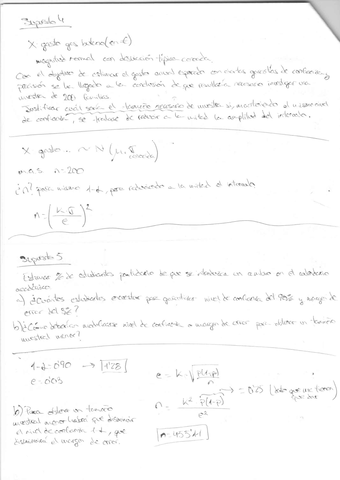 Supuesto 4
X gasto gas butano (en €)
magnitud normal con desviación típica conocida
Con el objetivo de estimar el gasto anual esperado con ciertas garantías de confianza y
precisión se ha llegado a la conclusión de que resultaría necesario investigar una
muestra de 200 familias
Justificar cuál sería el tamaño necesario de muestra si, manteniendo el mismo nivel
de confianza, se tratase de reducir a la mitad la amplitud del intervalo.
X gasto .. ~ N (μ, σ
conocida
m.a.s n = 200
¿n? para mismo 1-α, pero reduciendo a la mitad el intervalo
n = (k·σ / e)²
Supuesto 5
Estimar % de estudiantes partidarios de que se
académico
a) ¿Cuántos estudiantes para garantizar nivel de confianza del 90% y margen de
error del 5%?
b) ¿Cómo deberían modificarse nivel de confianza o margen de error para obtener un tamaño
muestral menor?
1-α = 0'90 → 1'28
e = k · √(p(1-p) / n)
n = k² p(1-p) / e² → = 0'25
n = 455'11
b) Para obtener un tamaño
muestral menor habrá que disminuir
el nivel de confianza 1-α, que
el margen de error.